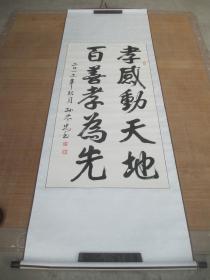 孝感動天地
百善孝為先
二〇一三年